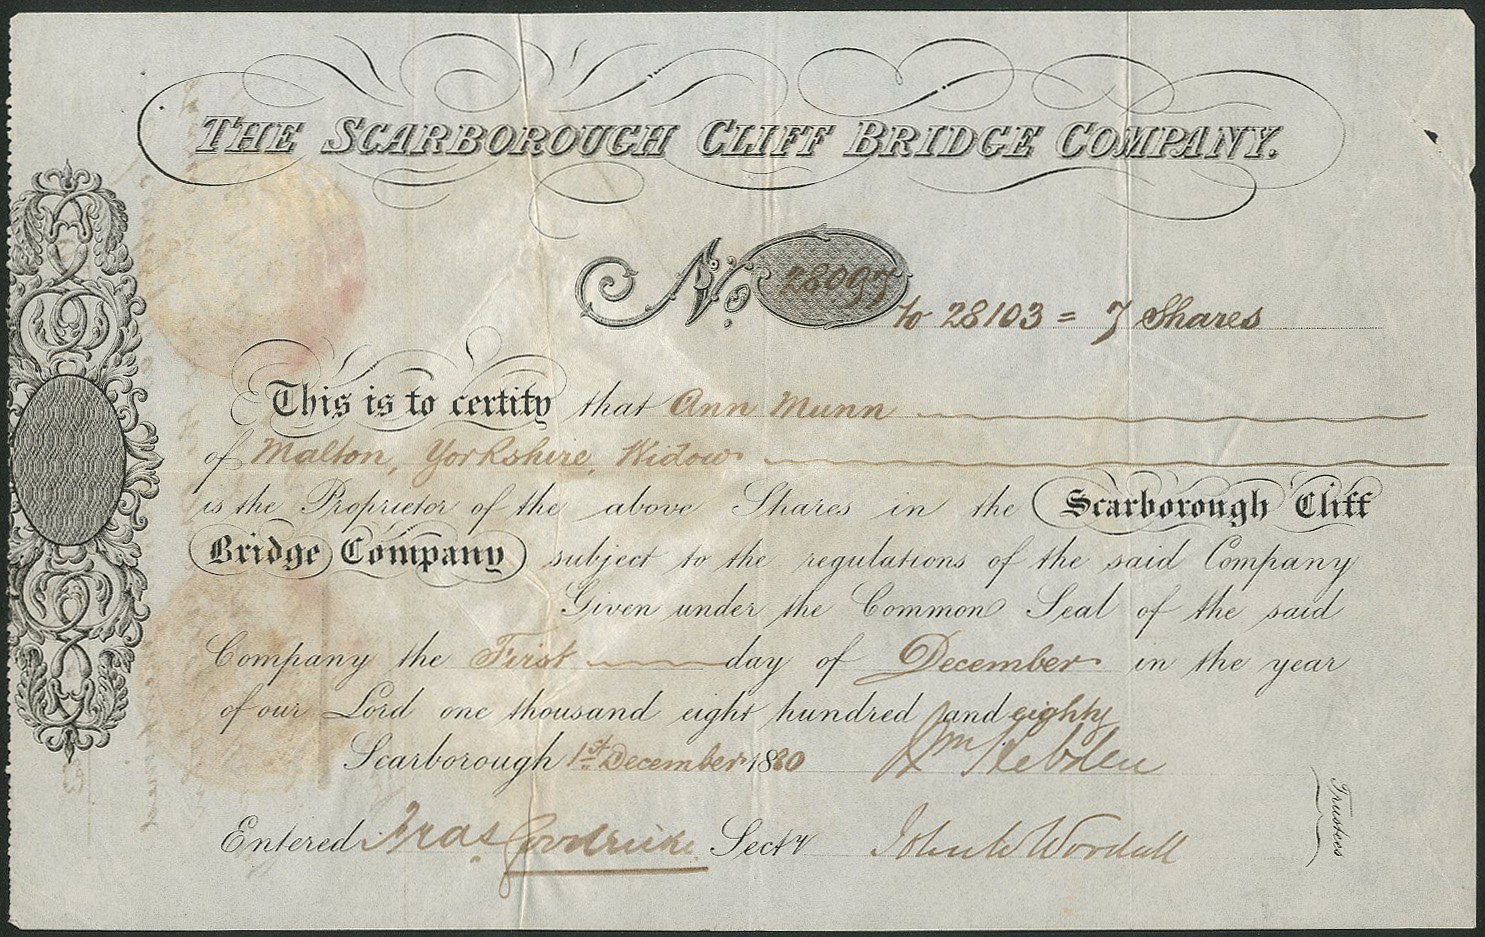 THE SCARBOROUGH CLIFF BRIDGE COMPANY.
No. 28097
to 28103 = 7 Shares
This is to certify that Ann Munn
of Malton, Yorkshire, Widow
is the Proprietor of the above Shares in the Scarborough Cliff
Bridge Company subject to the regulations of the said Company
Given under the Common Seal of the said
Company the First day of December in the year
of our Lord one thousand eight hundred and eighty
Scarborough 1st December 1880 Wm Hebden
Entered Fras Goodricke Secty John W Woodall
Trustees